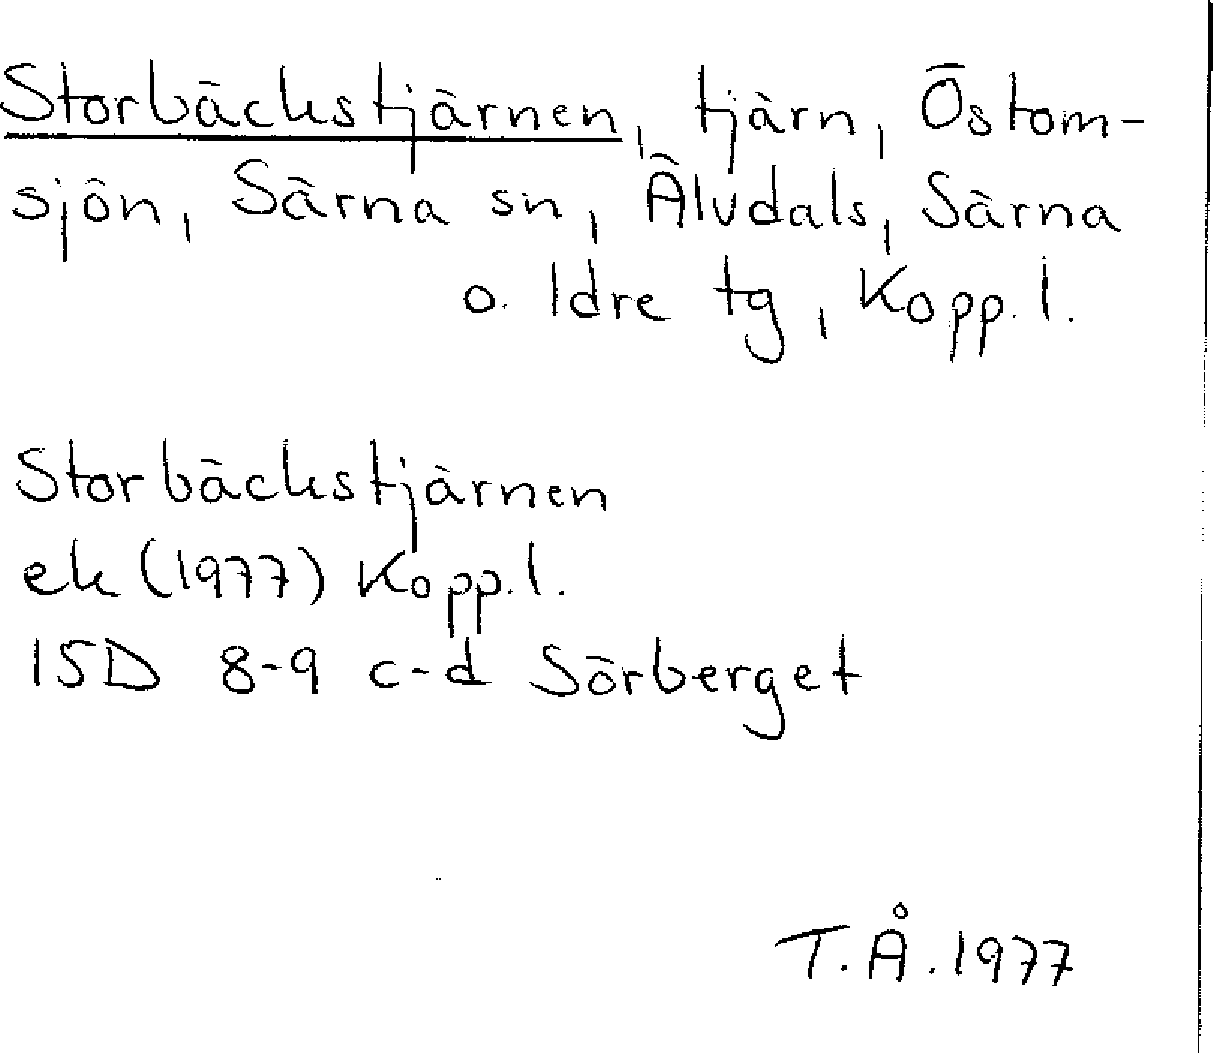 Storbäckstjärnen, tjärn, Östom-
sjön, Särna sn, Älvdals, Särna
o. Idre tg, Kopp. l.
Storbäckstjärnen
ek (1977) Kopp. l.
15D 8-9 c-d Sörberget
T.Å. 1977